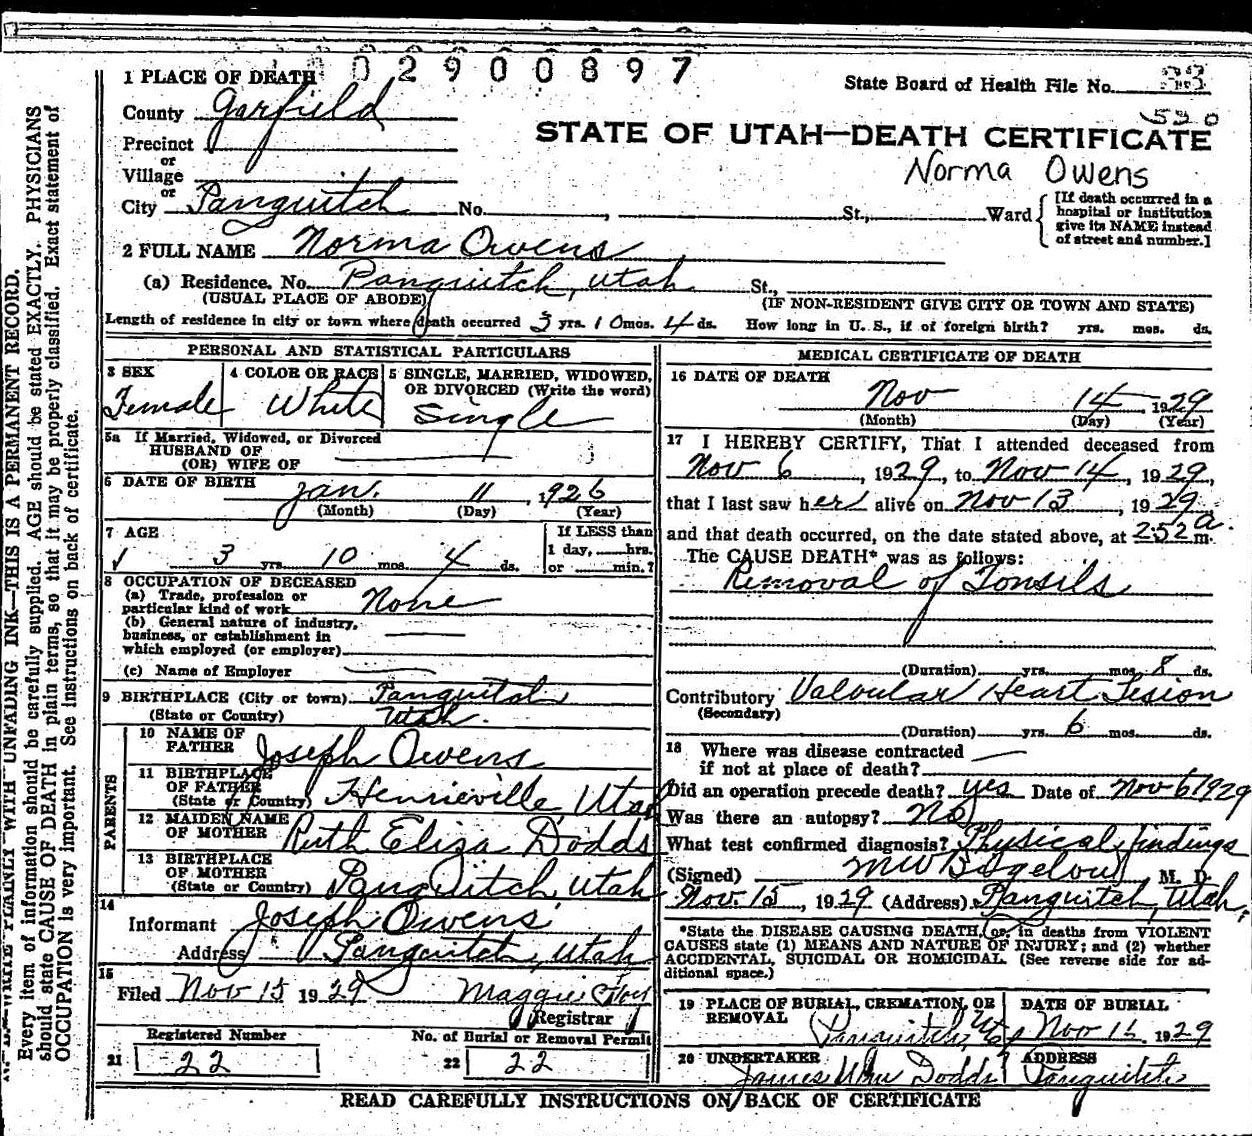 0 2 9 0 0 8 9 7
State Board of Health File No. 33
530
1 PLACE OF DEATH
County Garfield
STATE OF UTAH—DEATH CERTIFICATE
Precinct
or
Village
Norma Owens
or
City Panguitch No. , St., Ward
[If death occurred in a
hospital or institution
give its NAME instead
of street and number.]
2 FULL NAME Norma Owens
(a) Residence. No. Panguitch, Utah St.,
(USUAL PLACE OF ABODE)
(IF NON-RESIDENT GIVE CITY OR TOWN AND STATE)
Length of residence in city or town where death occurred 3 yrs. 10 mos. 4 ds. How long in U. S., if of foreign birth? yrs. mos. ds.
PERSONAL AND STATISTICAL PARTICULARS
3 SEX
Female
4 COLOR OR RACE
White
5 SINGLE, MARRIED, WIDOWED,
OR DIVORCED (Write the word)
Single
5a If Married, Widowed, or Divorced
HUSBAND OF
(OR) WIFE OF
6 DATE OF BIRTH Jan. 11 1926
(Month) (Day) (Year)
7 AGE
3 yrs. 10 mos. 4 ds.
If LESS than
1 day, hrs.
or min.?
8 OCCUPATION OF DECEASED
(a) Trade, profession or
particular kind of work None
(b) General nature of industry,
business, or establishment in
which employed (or employer)
(c) Name of Employer
9 BIRTHPLACE (City or town) Panguitch
(State or Country) Utah.
PARENTS
10 NAME OF
FATHER Joseph Owens
11 BIRTHPLACE
OF FATHER
(State or Country) Henrieville, Utah
12 MAIDEN NAME
OF MOTHER Ruth Eliza Dodds
13 BIRTHPLACE
OF MOTHER
(State or Country) Panguitch, Utah
14
Informant Joseph Owens
Address Panguitch, Utah
15
Filed Nov 15 1929 Maggie
Registrar
Registered Number
21 22
No. of Burial or Removal Permit
22 22
MEDICAL CERTIFICATE OF DEATH
16 DATE OF DEATH
Nov 14, 1929
(Month) (Day) (Year)
17 I HEREBY CERTIFY, That I attended deceased from
Nov 6, 1929, to Nov 14, 1929,
that I last saw her alive on Nov 13, 1929
and that death occurred, on the date stated above, at 2:52 a. m.
The CAUSE DEATH* was as follows:
Removal of Tonsils
(Duration) yrs. mos. 8 ds.
Contributory Valvular Heart Lesion
(Secondary)
(Duration) yrs. 6 mos. ds.
18 Where was disease contracted
if not at place of death?
Did an operation precede death? yes Date of Nov 6 1929
Was there an autopsy? No
What test confirmed diagnosis? Physical findings
(Signed) M W Bigelow, M. D.
Nov. 15, 1929 (Address) Panguitch, Utah.
*State the DISEASE CAUSING DEATH, or, in deaths from VIOLENT
CAUSES state (1) MEANS AND NATURE OF INJURY; and (2) whether
ACCIDENTAL, SUICIDAL OR HOMICIDAL. (See reverse side for ad-
ditional space.)
19 PLACE OF BURIAL, CREMATION, OR
REMOVAL
Panguitch, Ut
DATE OF BURIAL
Nov 15 1929
20 UNDERTAKER
James Wm Dodds
ADDRESS
Panguitch
READ CAREFULLY INSTRUCTIONS ON BACK OF CERTIFICATE
WRITE PLAINLY WITH UNFADING INK—THIS IS A PERMANENT RECORD.
Every item of information should be carefully supplied. AGE should be stated EXACTLY. PHYSICIANS
should state CAUSE OF DEATH in plain terms, so that it may be properly classified. Exact statement of
OCCUPATION is very important. See instructions on back of certificate.